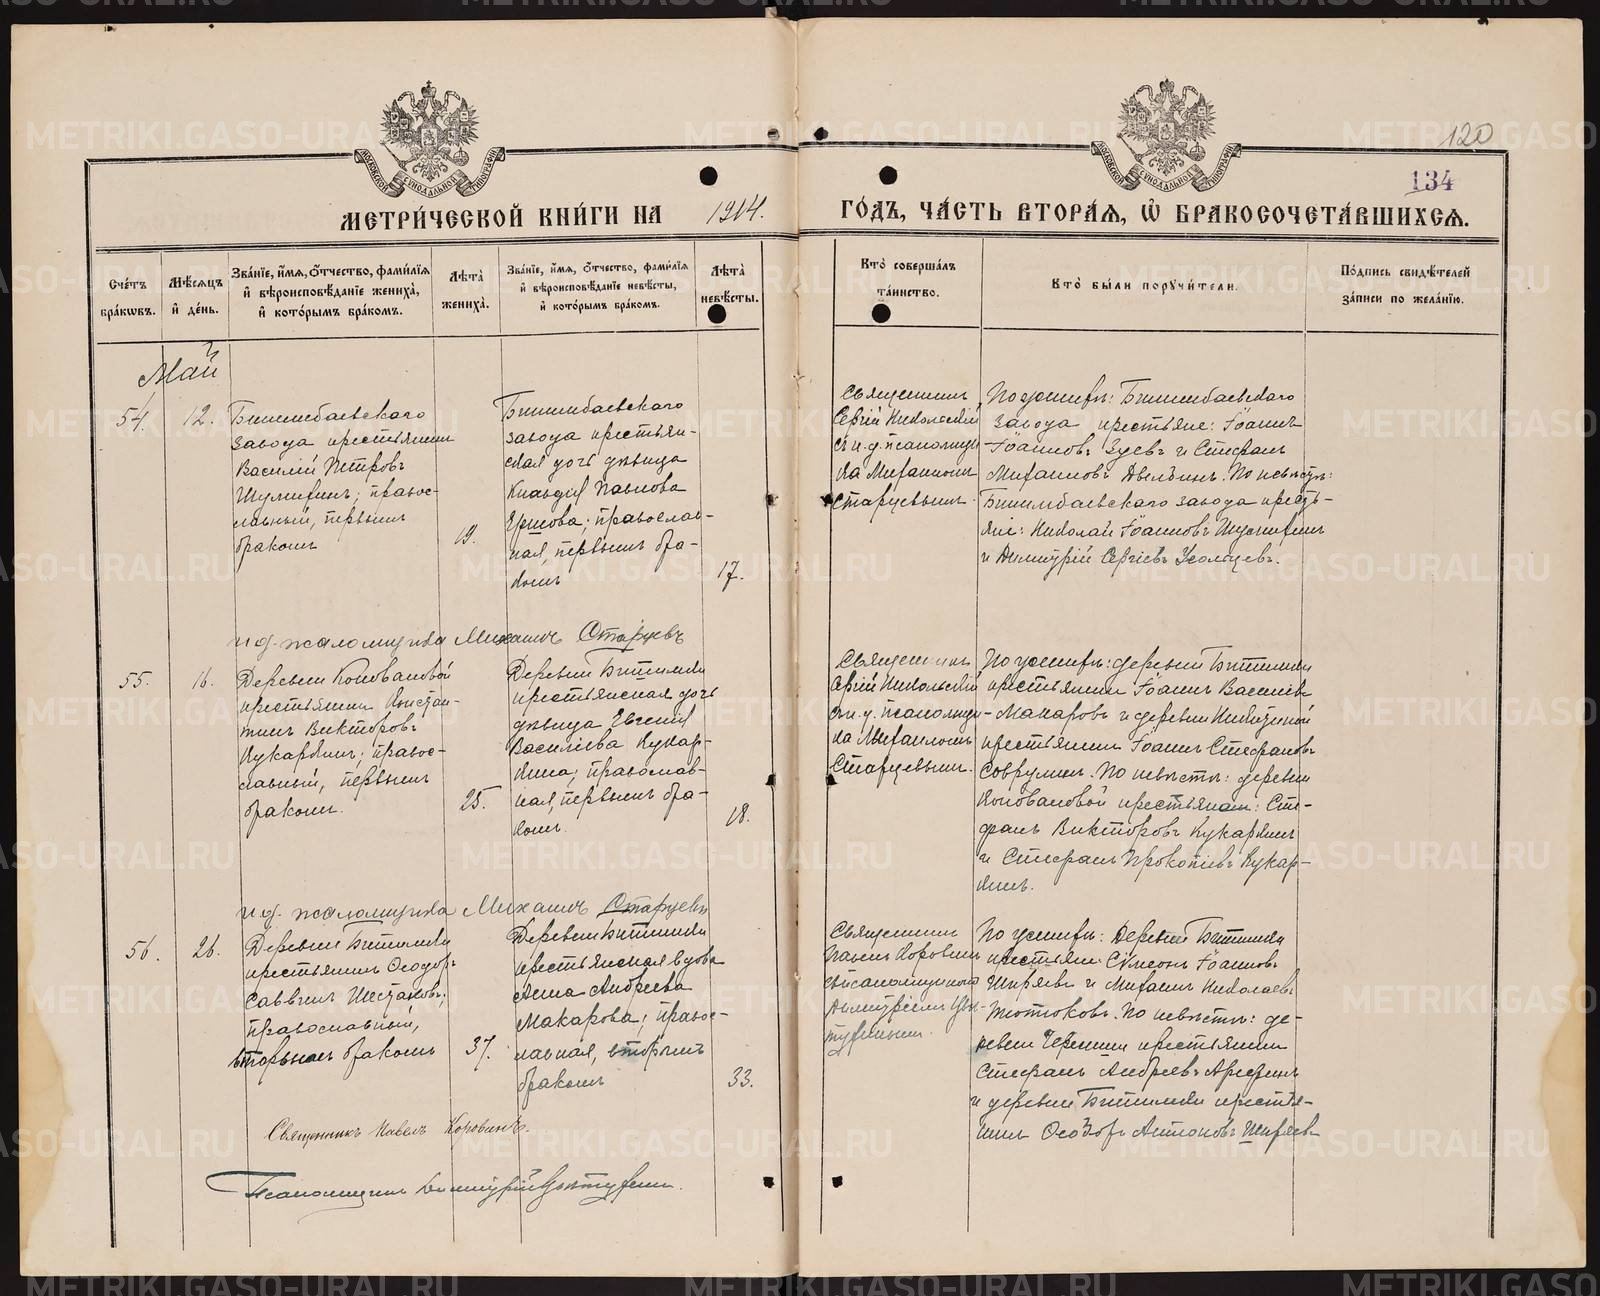 120
134
МЕТРИ́ЧЕСКОЙ КНИ́ГИ НА 1914.
ГО́ДЪ, ЧА́СТЬ ВТОРА́Ѧ, Ѽ БРАКОСОЧЕТА́ВШИХСѦ.
Сче́тъ бра́кѡвъ.
Мѣ́сѧцъ и҆ де́нь.
Зва́нїе, и҆́мѧ, о҆́тчество, фами́лїѧ и҆ вѣроисповѣ́данїе жениха̀, и҆ кото́рымъ бра́комъ.
Лѣ́та̀ жениха̀.
Зва́нїе, и҆́мѧ, о҆́тчество, фами́лїѧ и҆ вѣроисповѣ́данїе невѣ́сты, и҆ кото́рымъ бра́комъ.
Лѣ́та̀ невѣ́сты.
Кто̀ соверша́лъ та́инство.
Кто̀ бы́ли поручи́тели.
По́дпись свидѣ́телей за́писи по жела́нїю.
Май
54.
12.
Билимбаевскаго
завода крестьянинъ
Василій Петровъ
православный, первымъ
бракомъ
19.
Билимбаевскаго
завода крестьян-
ская дочь дѣвица
Клавдія Павлова
Ершова; православ-
ная, первымъ бра-
комъ
17.
Священникъ
Сергій Никольскій
съ и.д. псаломщи-
ка Михаиломъ
Старцевымъ.
По женихѣ: Билимбаевскаго
завода крестьяне: Іоаннъ
Іоанновъ Зуевъ и Стефанъ
Михаиловъ По невѣстѣ:
Билимбаевскаго завода кресть-
яне: Николай Іоанновъ
и Димитрій Сергіевъ Усольцевъ.
и д. псаломщика Михаилъ Старцевъ
55.
16.
Деревни Коноваловой
крестьянинъ Констан-
тинъ Викторовъ
Кукаркинъ; правос-
лавный, первымъ
бракомъ.
25.
Деревни Битимки
крестьянская дочь
дѣвица Евгенія
Василіева Кукар-
кина; православ-
ная, первымъ бра-
комъ.
18.
Священникъ
Сергій Никольскій
съ и.д. псаломщи-
ка Михаиломъ
Старцевымъ.
По женихѣ: деревни Битимки
крестьянинъ Іоаннъ Василіевъ
Макаровъ и деревни
крестьянинъ Іоаннъ Стефановъ
По невѣстѣ: деревни
Коноваловой крестьяне: Сте-
фанъ Викторовъ Кукаркинъ
и Стефанъ Прокопіевъ Кукар-
кинъ.
и д. псаломщика Михаилъ Старцевъ
56.
26.
Деревни Битимки
крестьянинъ Ѳеодоръ
Саввинъ Шестаковъ;
православный,
вторымъ бракомъ
37.
Деревни Битимки
крестьянская вдова
Анна Андреева
Макарова; правос-
лавная, вторымъ
бракомъ
33.
Священникъ
Павелъ Коровинъ
съ псаломщикомъ
Димитріемъ
По женихѣ: деревни Битимки
крестьяне: Симеонъ Іоанновъ
Ширяевъ и Михаилъ Николаевъ
По невѣстѣ: де-
ревни Черемши крестьянинъ
Стефанъ Андреевъ Арефинъ
и деревни Битимки крестья-
нинъ Ѳеодоръ Антоновъ Ширяевъ
Священникъ Павелъ Коровинъ.
Псаломщикъ Димитрій
METRIKI.GASO-URAL.RU